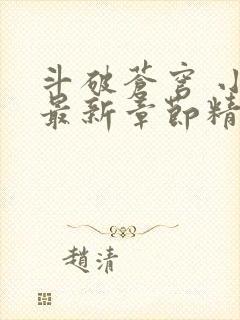 斗破苍穹 小
最新章节精
赵清